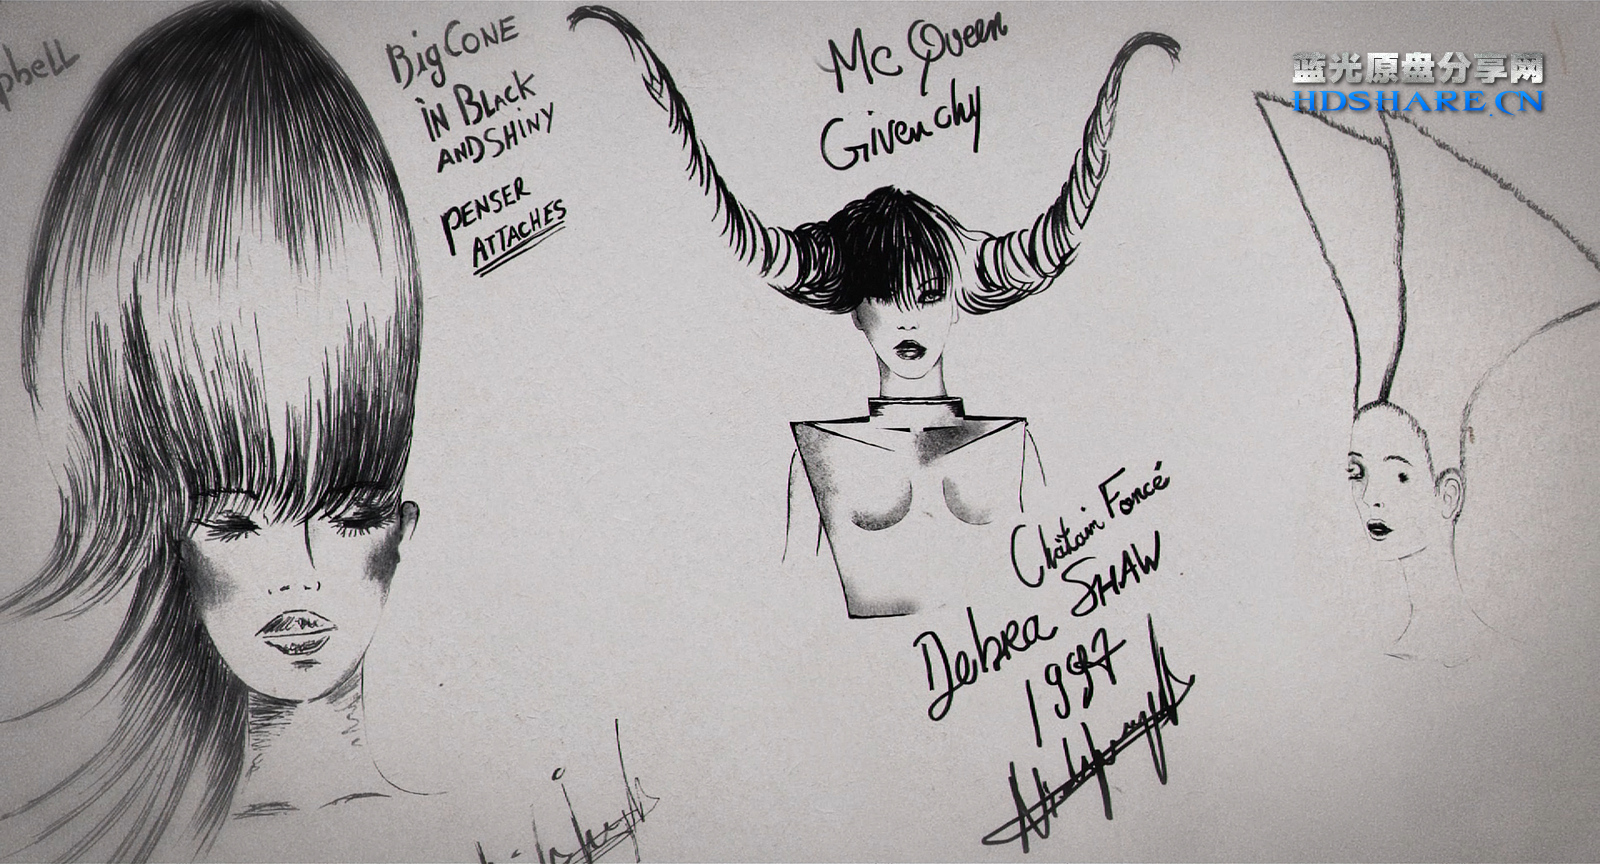 pbell
BigCONE
IN BLACK
AND SHINY
PENSER
ATTACHES
Mc Queen
Givenchy
Châtain Foncé
Debra SHAW
1997
蓝光原盘分享网
HDSHARE.CN